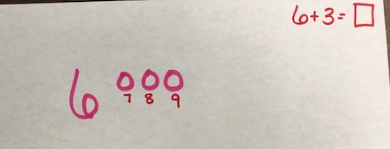 6+3=□
6
7 8 9